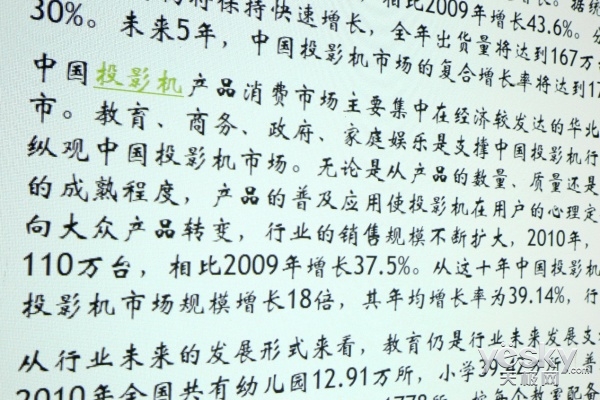 30%。未来5年，中国投影机市场的复合增长率将达到17
将保持快速增长，全年出货量将达到167万
相比2009年增长43.6%。
中国投影机产品消费市场主要集中在经济较发达的华北
市。教育、商务、政府、家庭娱乐是支撑中国投影机行
纵观中国投影机市场。无论是从产品的数量、质量还是
的成熟程度，产品的普及应用使投影机在用户的心理定
向大众产品转变，行业的销售规模不断扩大，2010年，
110万台，相比2009年增长37.5%。从这十年中国投影机
投影机市场规模增长18倍，其年均增长率为39.14%，行
从行业未来的发展形式来看，教育仍是行业未来发展支
2010年全国共有幼儿园12.91万所，小学39.22万所，普
按每个教室配备
yesky
天极网